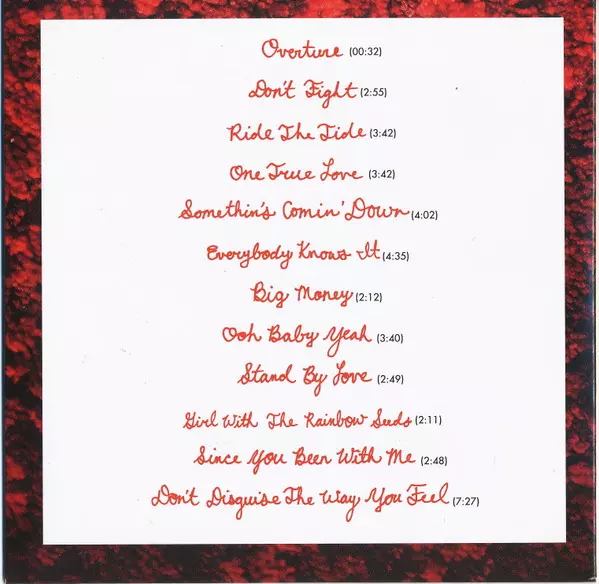 Overture (00:32)
Don't Fight (2:55)
Ride The Tide (3:42)
One True Love (3:42)
Somethin's Comin' Down (4:02)
Everybody Knows It (4:35)
Big Money (2:12)
Ooh Baby Yeah (3:40)
Stand By Love (2:49)
Girl With The Rainbow Suds (2:11)
Since You Been With Me (2:48)
Don't Disguise The Way You Feel (7:27)